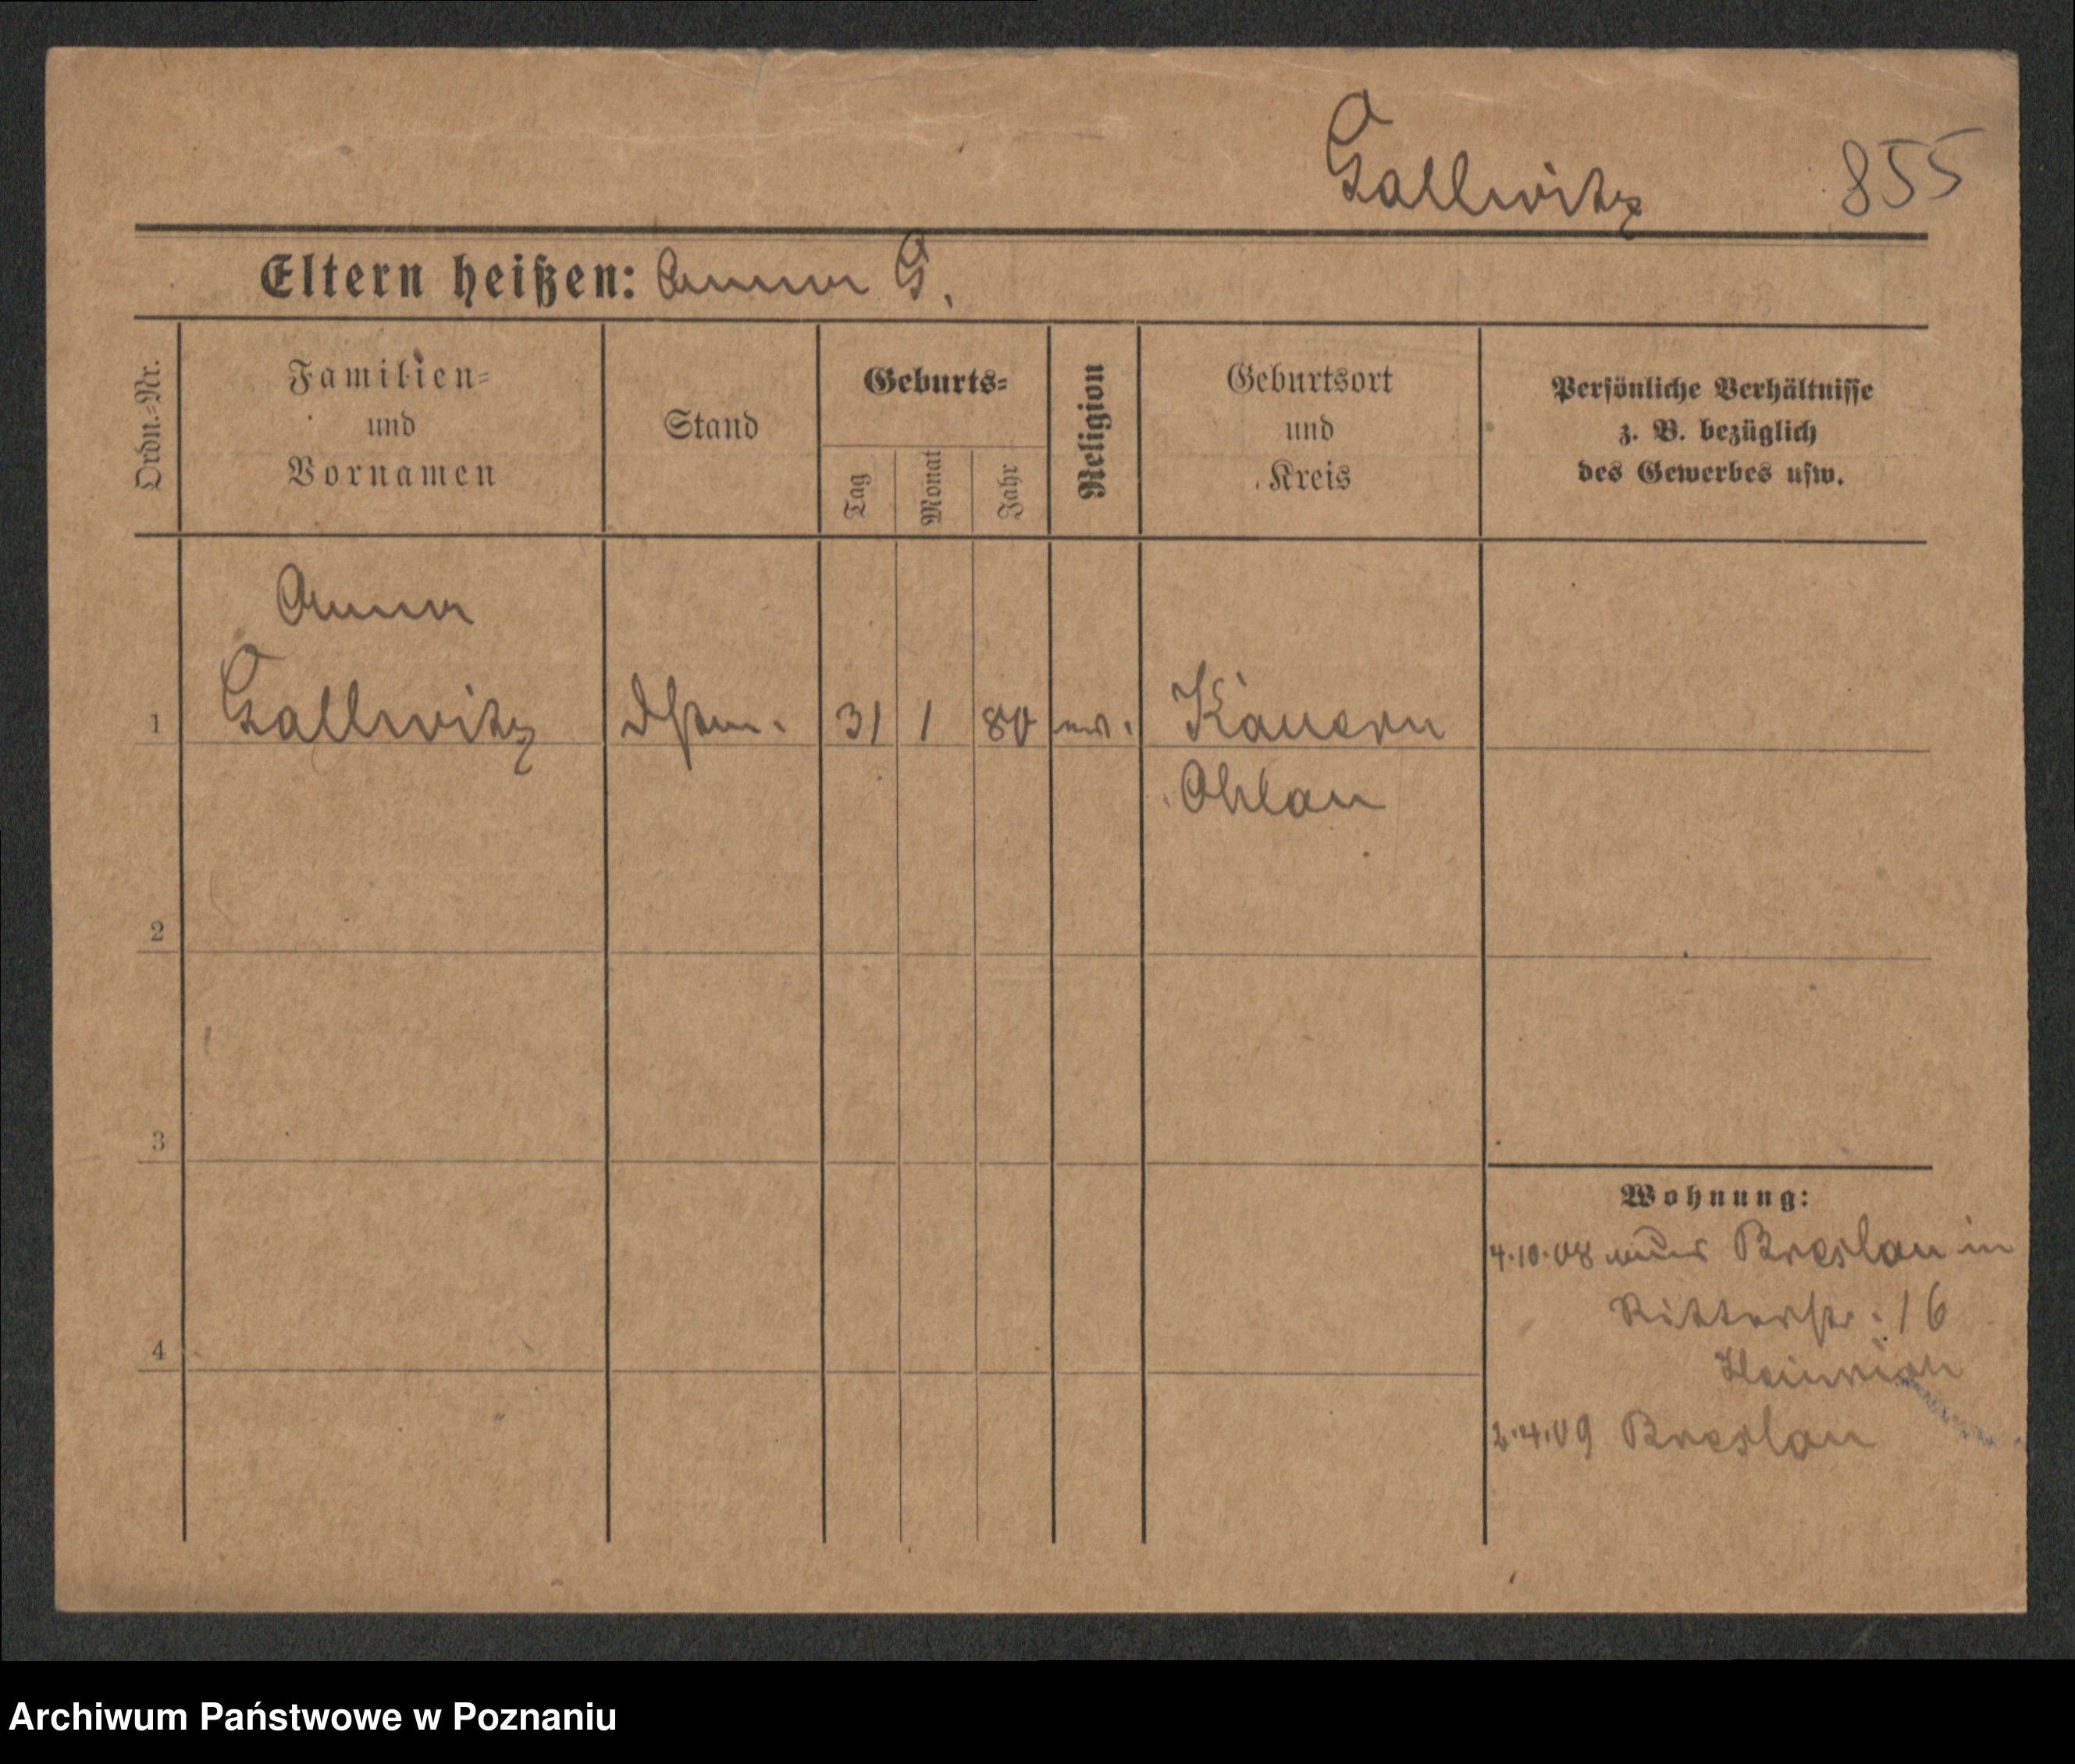 Gallwitz 855
Eltern heißen: Anna G.
Ordn.-Nr.
Familien-
und
Vornamen
Stand
Geburts-
Tag
Monat
Jahr
Religion
Geburtsort
und
Kreis
Persönliche Verhältnisse
z. B. bezüglich
des Gewerbes usw.
Anna
1 Gallwitz 31 1 80 Kauern
Ohlau
2
3
4
Wohnung:
4.10.08 Breslau in
Ritterstr. 16
Heinrich
2.4.09 Breslau
Archiwum Państwowe w Poznaniu